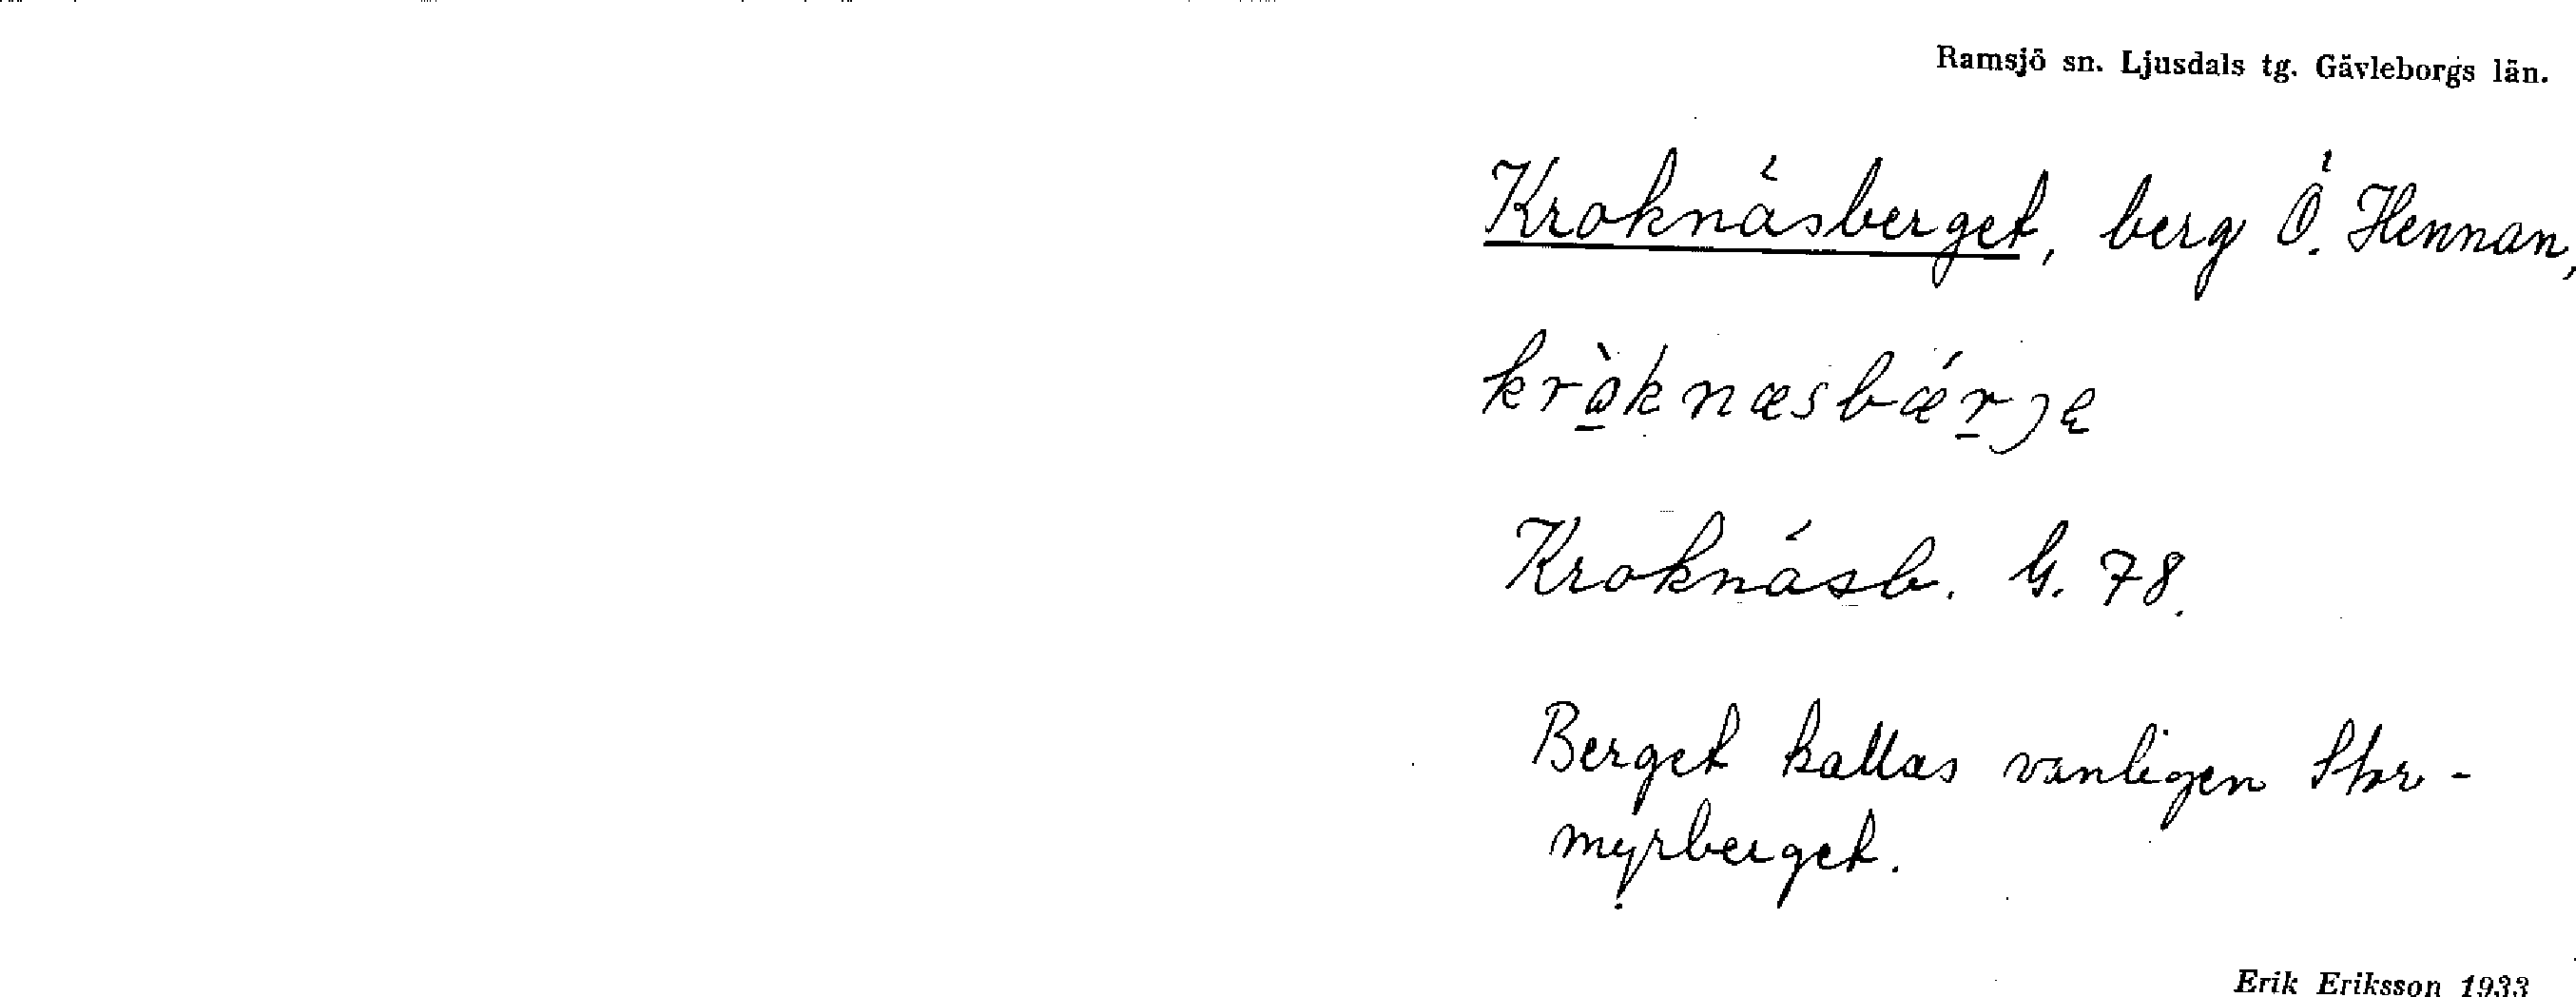 Ramsjö sn. Ljusdals tg. Gävleborgs län.
Kroknäsberget, berg Ö. Hennan,
krò̱knæsbǽṟję
Kroknäsb. G. 78.
Berget kallas vanligen Stor-
myrberget.
Erik Eriksson 1933